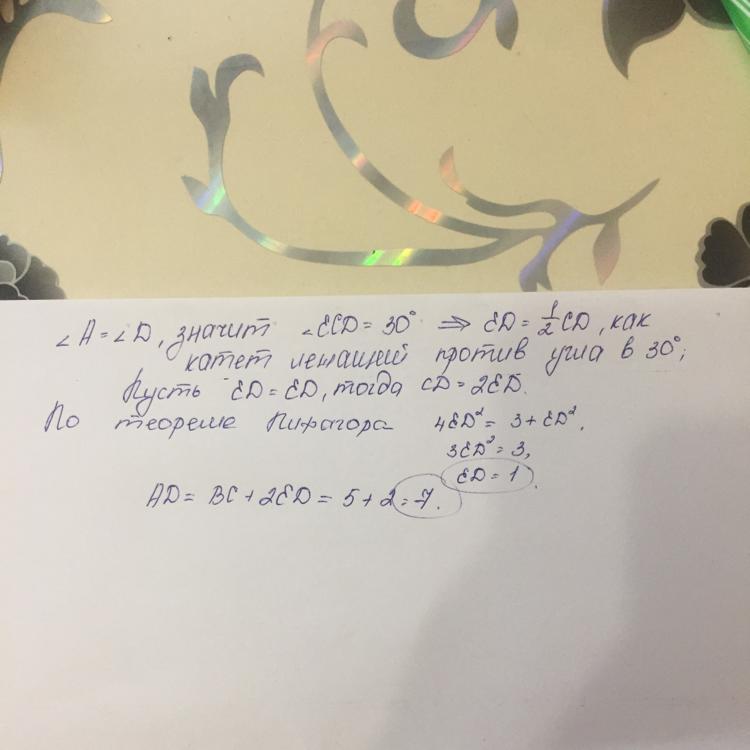 ∠A = ∠D, значит ∠ECD = 30° ⇒ ED = 1/2 CD, как
катет лежащий против угла в 30°;
Пусть ED = ED, тогда CD = 2ED.
По теореме Пифагора 4ED² = 3 + ED².
3ED² = 3,
ED = 1.
AD = BC + 2ED = 5 + 2 = 7.